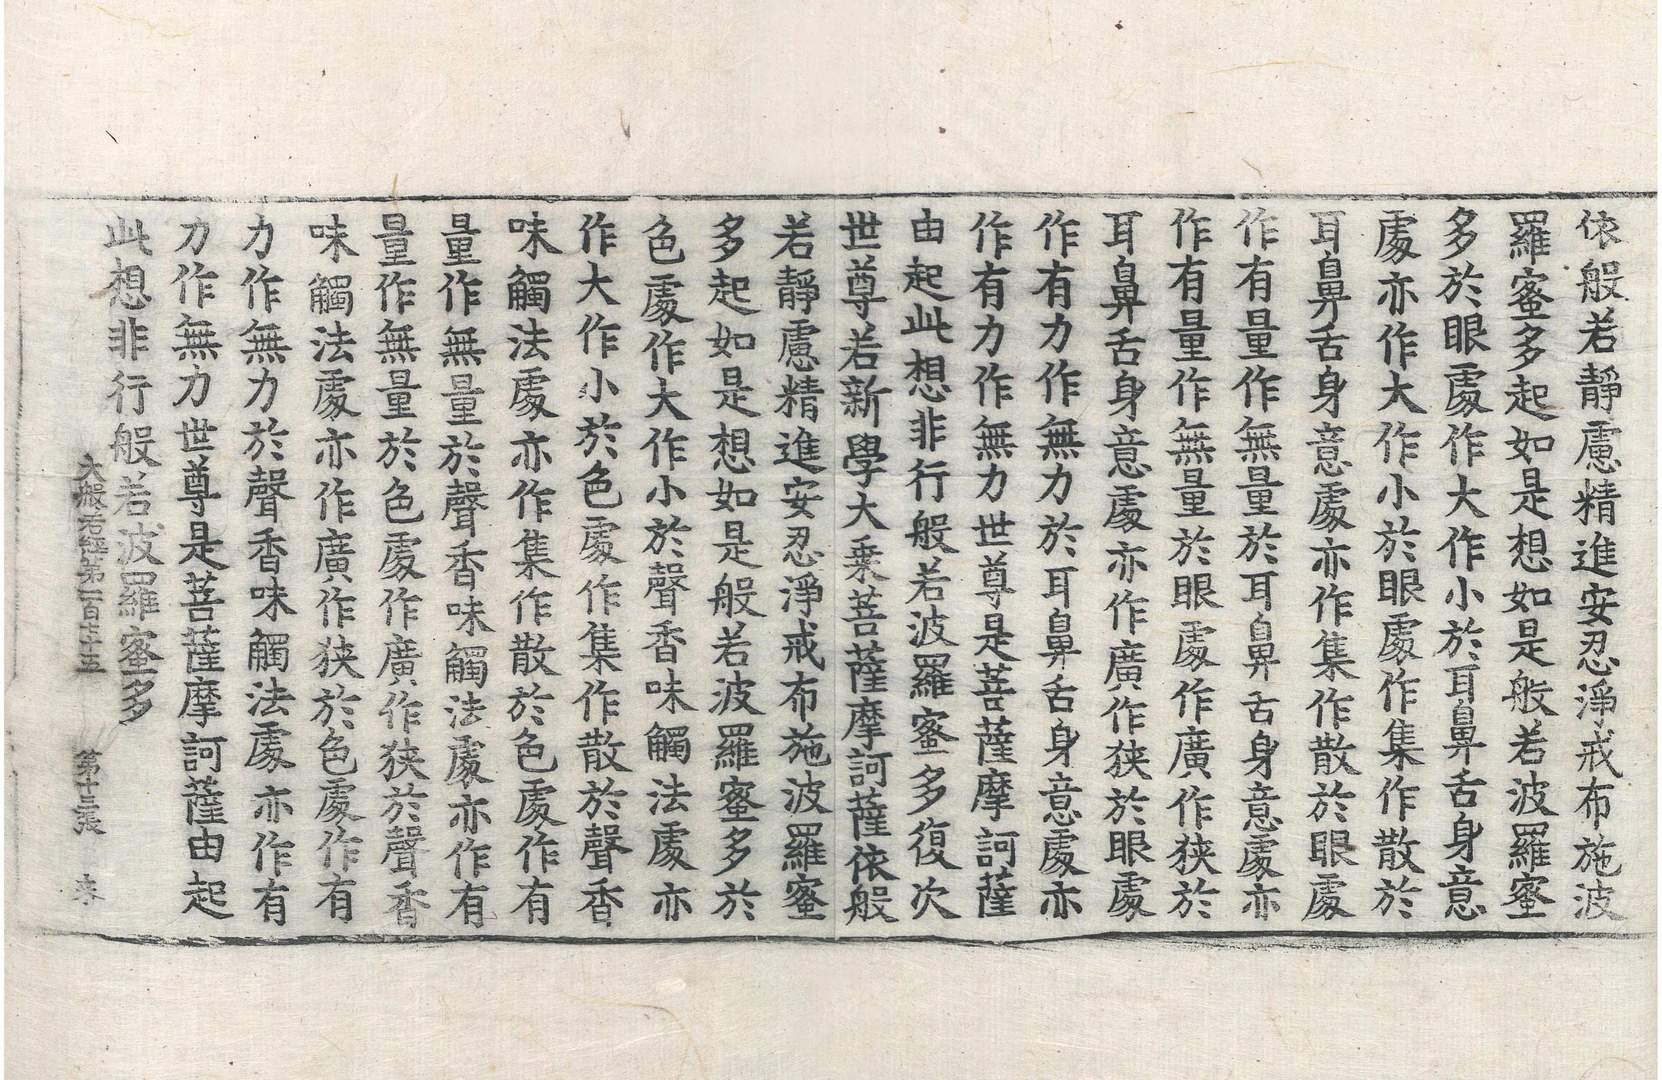 依般若靜慮精進安忍淨戒布施波
羅蜜多起如是想如是般若波羅蜜
多於眼處作大作小於耳鼻舌身意
處亦作大作小於眼處作集作散於
耳鼻舌身意處亦作集作散於眼處
作有量作無量於耳鼻舌身意處亦
作有量作無量於眼處作廣作狹於
耳鼻舌身意處亦作廣作狹於眼處
作有力作無力於耳鼻舌身意處亦
作有力作無力世尊是菩薩摩訶薩
由起此想非行般若波羅蜜多復次
世尊若新學大乗菩薩摩訶薩依般
若靜慮精進安忍淨戒布施波羅蜜
多起如是想如是般若波羅蜜多於
色處作大作小於聲香味觸法處亦
作大作小於色處作集作散於聲香
味觸法處亦作集作散於色處作有
量作無量於聲香味觸法處亦作有
量作無量於色處作廣作狹於聲香
味觸法處亦作廣作狹於色處作有
力作無力於聲香味觸法處亦作有
力作無力世尊是菩薩摩訶薩由起
此想非行般若波羅蜜多
大般若經第一百七十五 第十三張 来